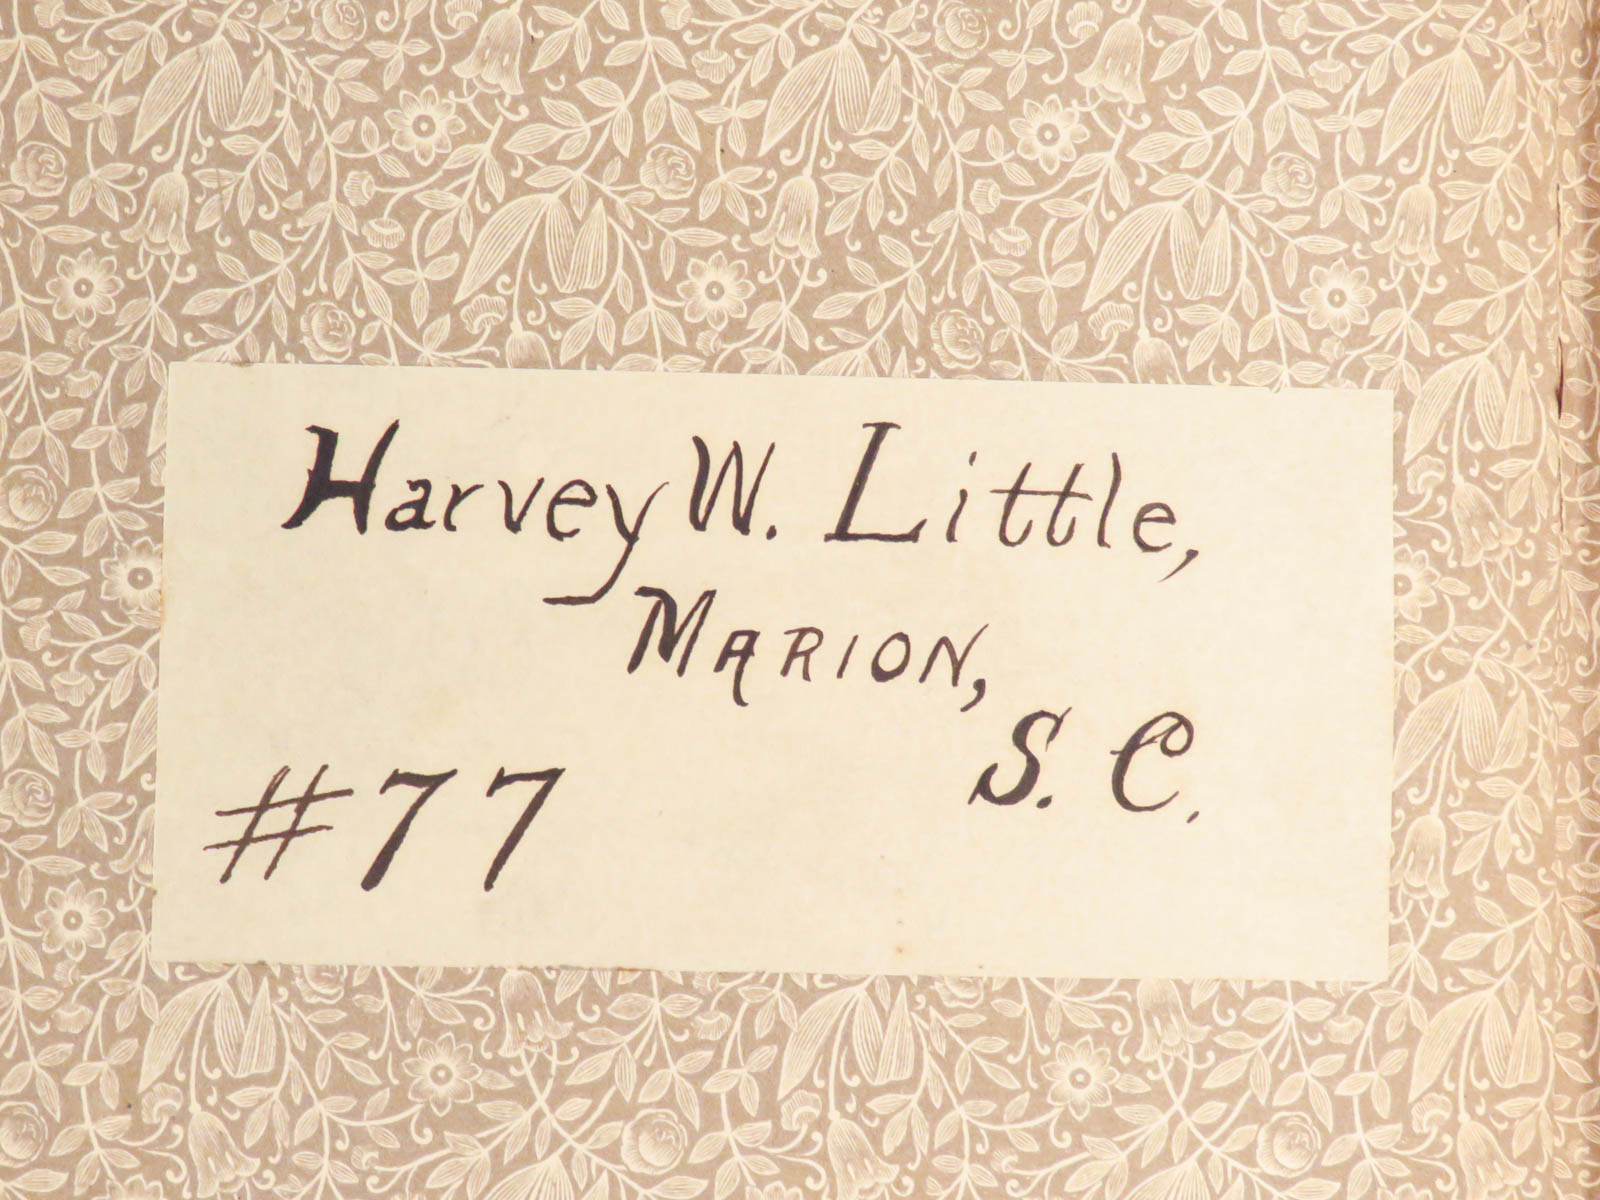 Harvey W. Little,
MARION,
S. C.
#77